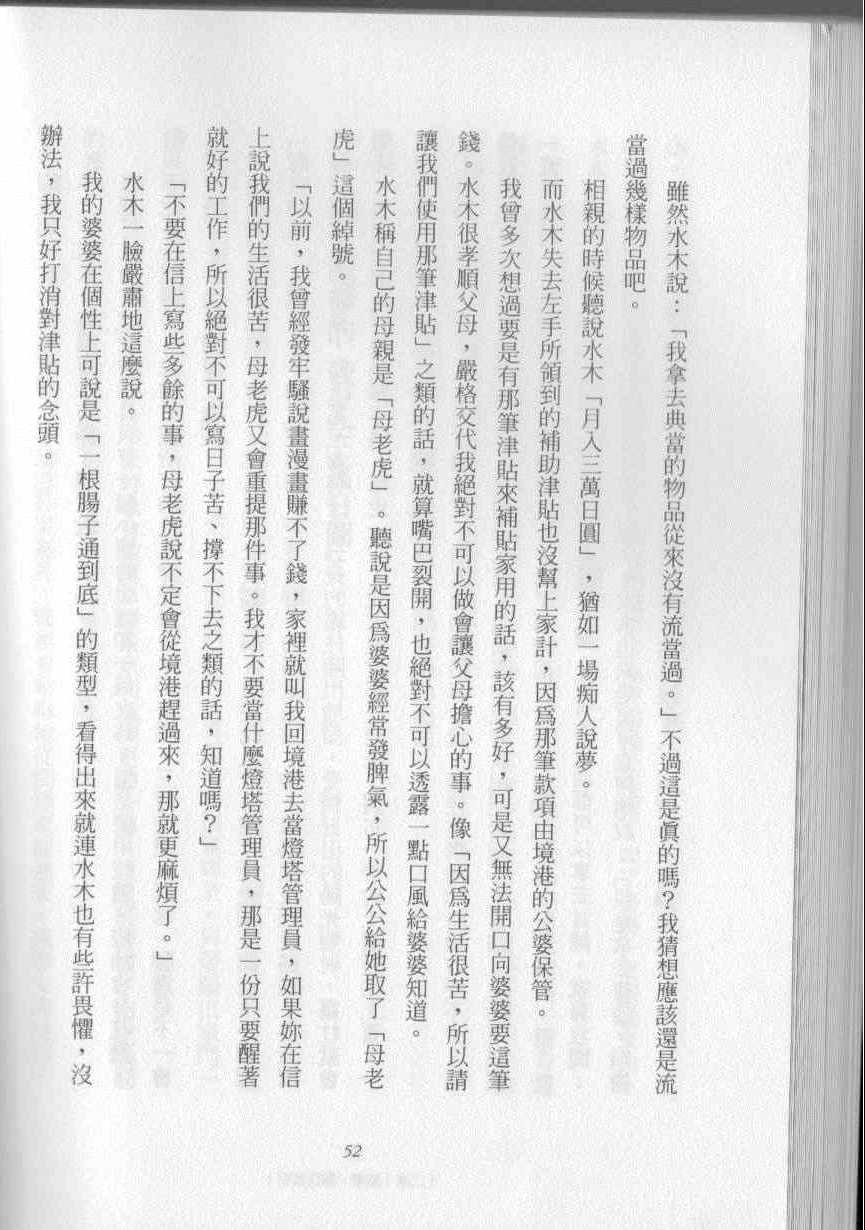 雖然水木說：「我拿去典當的物品從來沒有流當過。」不過這是真的嗎？我猜想應該還是流
當過幾樣物品吧。
相親的時候聽說水木「月入三萬日圓」，猶如一場痴人說夢。
而水木失去左手所領到的補助津貼也沒幫上家計，因為那筆款項由境港的公婆保管。
我曾多次想過要是有那筆津貼來補貼家用的話，該有多好，可是又無法開口向婆婆要這筆
錢。水木很孝順父母，嚴格交代我絕對不可以做會讓父母擔心的事。像「因為生活很苦，所以請
讓我們使用那筆津貼」之類的話，就算嘴巴裂開，也絕對不可以透露一點口風給婆婆知道。
水木稱自己的母親是「母老虎」。聽說是因為婆婆經常發脾氣，所以公公給她取了「母老
虎」這個綽號。
「以前，我曾經發牢騷說畫漫畫賺不了錢，家裡就叫我回境港去當燈塔管理員，如果妳在信
上說我們的生活很苦，母老虎又會重提那件事。我才不要當什麼燈塔管理員，那是一份只要醒著
就好的工作，所以絕對不可以寫日子苦、撐不下去之類的話，知道嗎？」
「不要在信上寫些多餘的事，母老虎說不定會從境港趕過來，那就更麻煩了。」
水木一臉嚴肅地這麼說。
我的婆婆在個性上可說是「一根腸子通到底」的類型，看得出來就連水木也有些許畏懼，沒
辦法，我只好打消對津貼的念頭。
52